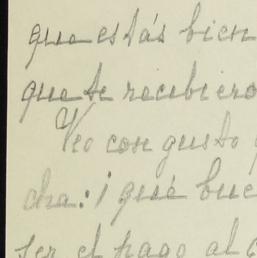 que estás bien
que te recibiero
Veo con gusto q
cha: ¡qué bue
ser el pago al c